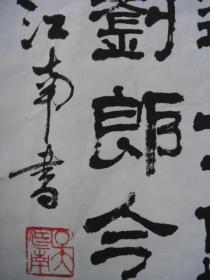 劉郎今
江南書